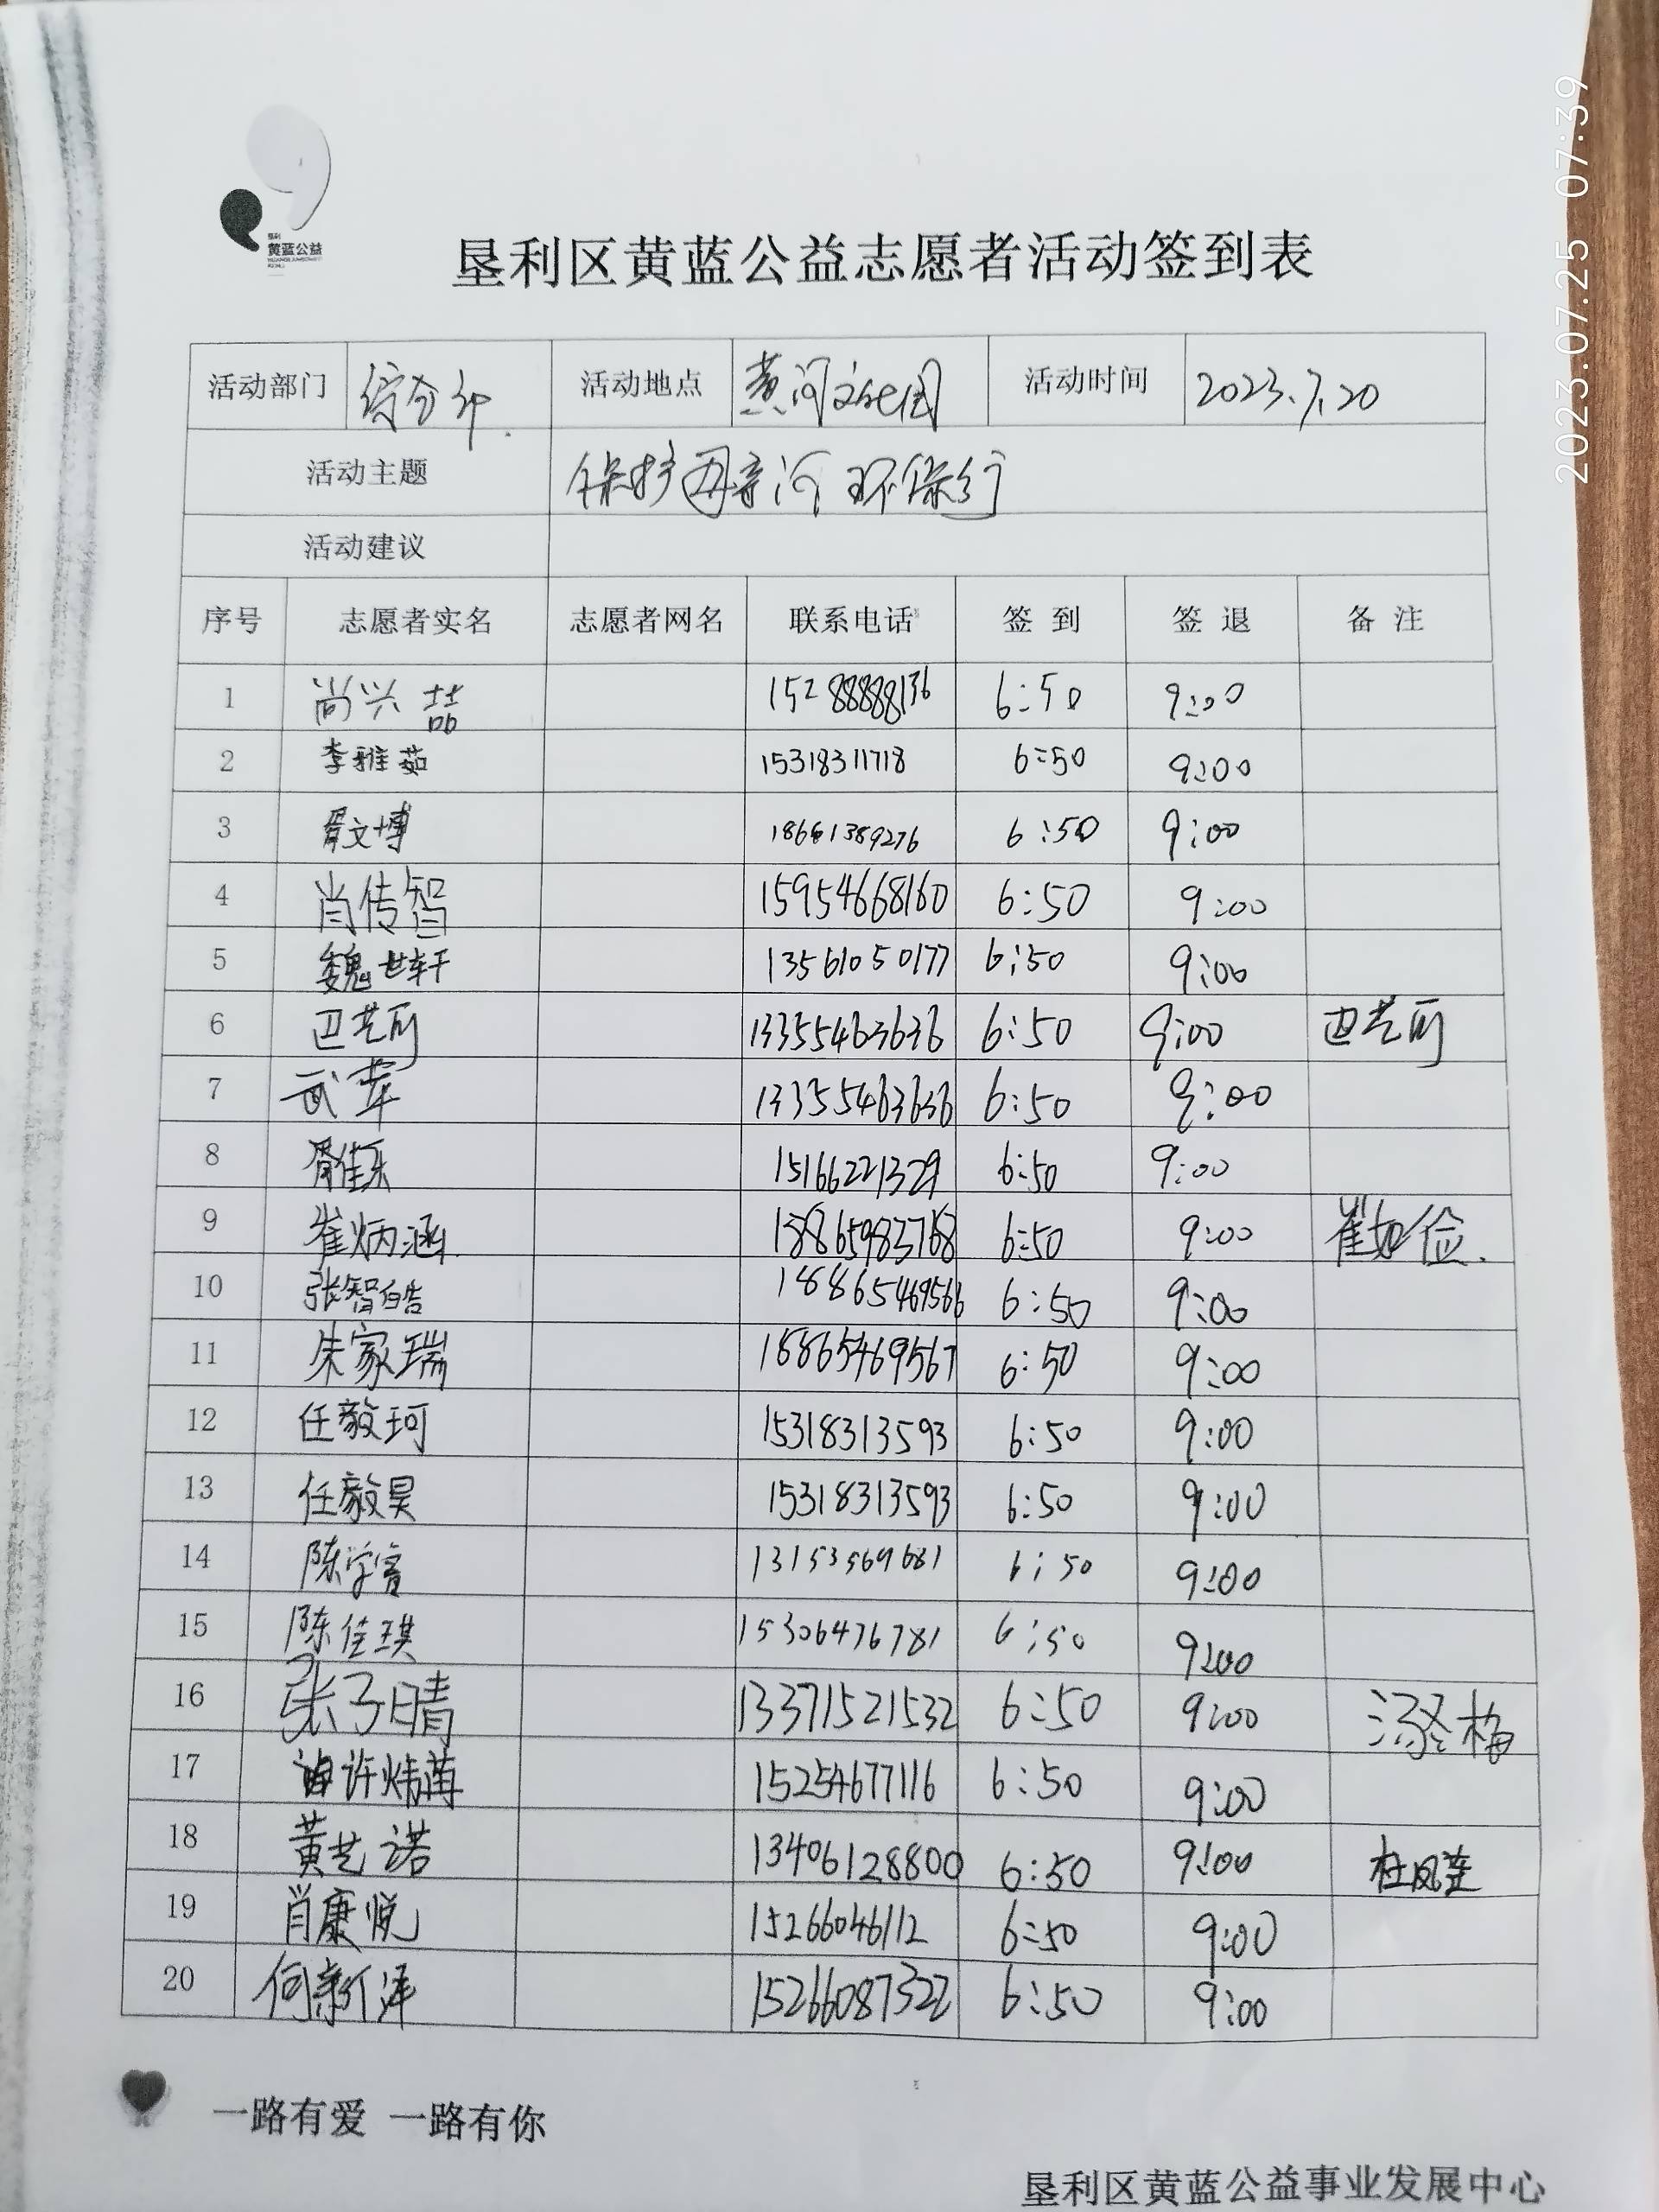 垦利
黄蓝公益
垦利区黄蓝公益志愿者活动签到表
2023.07.25 07:39
活动部门 综合部 活动地点 黄河文化园 活动时间 2023.7.20
活动主题 保护母亲河 环保行
活动建议
序号 志愿者实名 志愿者网名 联系电话 签到 签退 备注
1 尚兴喆 15288888136 6:50 9:00
2 李雅茹 15318311718 6:50 9:00
3 胥文博 18661389276 6:50 9:00
4 肖传智 15954668160 6:50 9:00
5 魏世轩 13561050177 6:50 9:00
6 13355463636 6:50 9:00
7 13355463636 6:50 9:00
8 胥佳乐 15166221329 6:50 9:00
9 崔炳涵 18865983768 6:50 9:00 崔如俭
10 张智皓 18865469566 6:50 9:00
11 朱家瑞 18865469567 6:50 9:00
12 任毅珂 15318313593 6:50 9:00
13 任毅昊 15318313593 6:50 9:00
14 13153569681 6:50 9:00
15 陈佳琪 15306476781 6:50 9:00
16 张子晴 13371521532 6:50 9:00
17 15254677116 6:50 9:00
18 黄艺诺 13406128800 6:50 9:00 杜凤莲
19 肖康悦 15266046112 6:50 9:00
20 何新泽 15266087322 6:50 9:00
一路有爱 一路有你
垦利区黄蓝公益事业发展中心